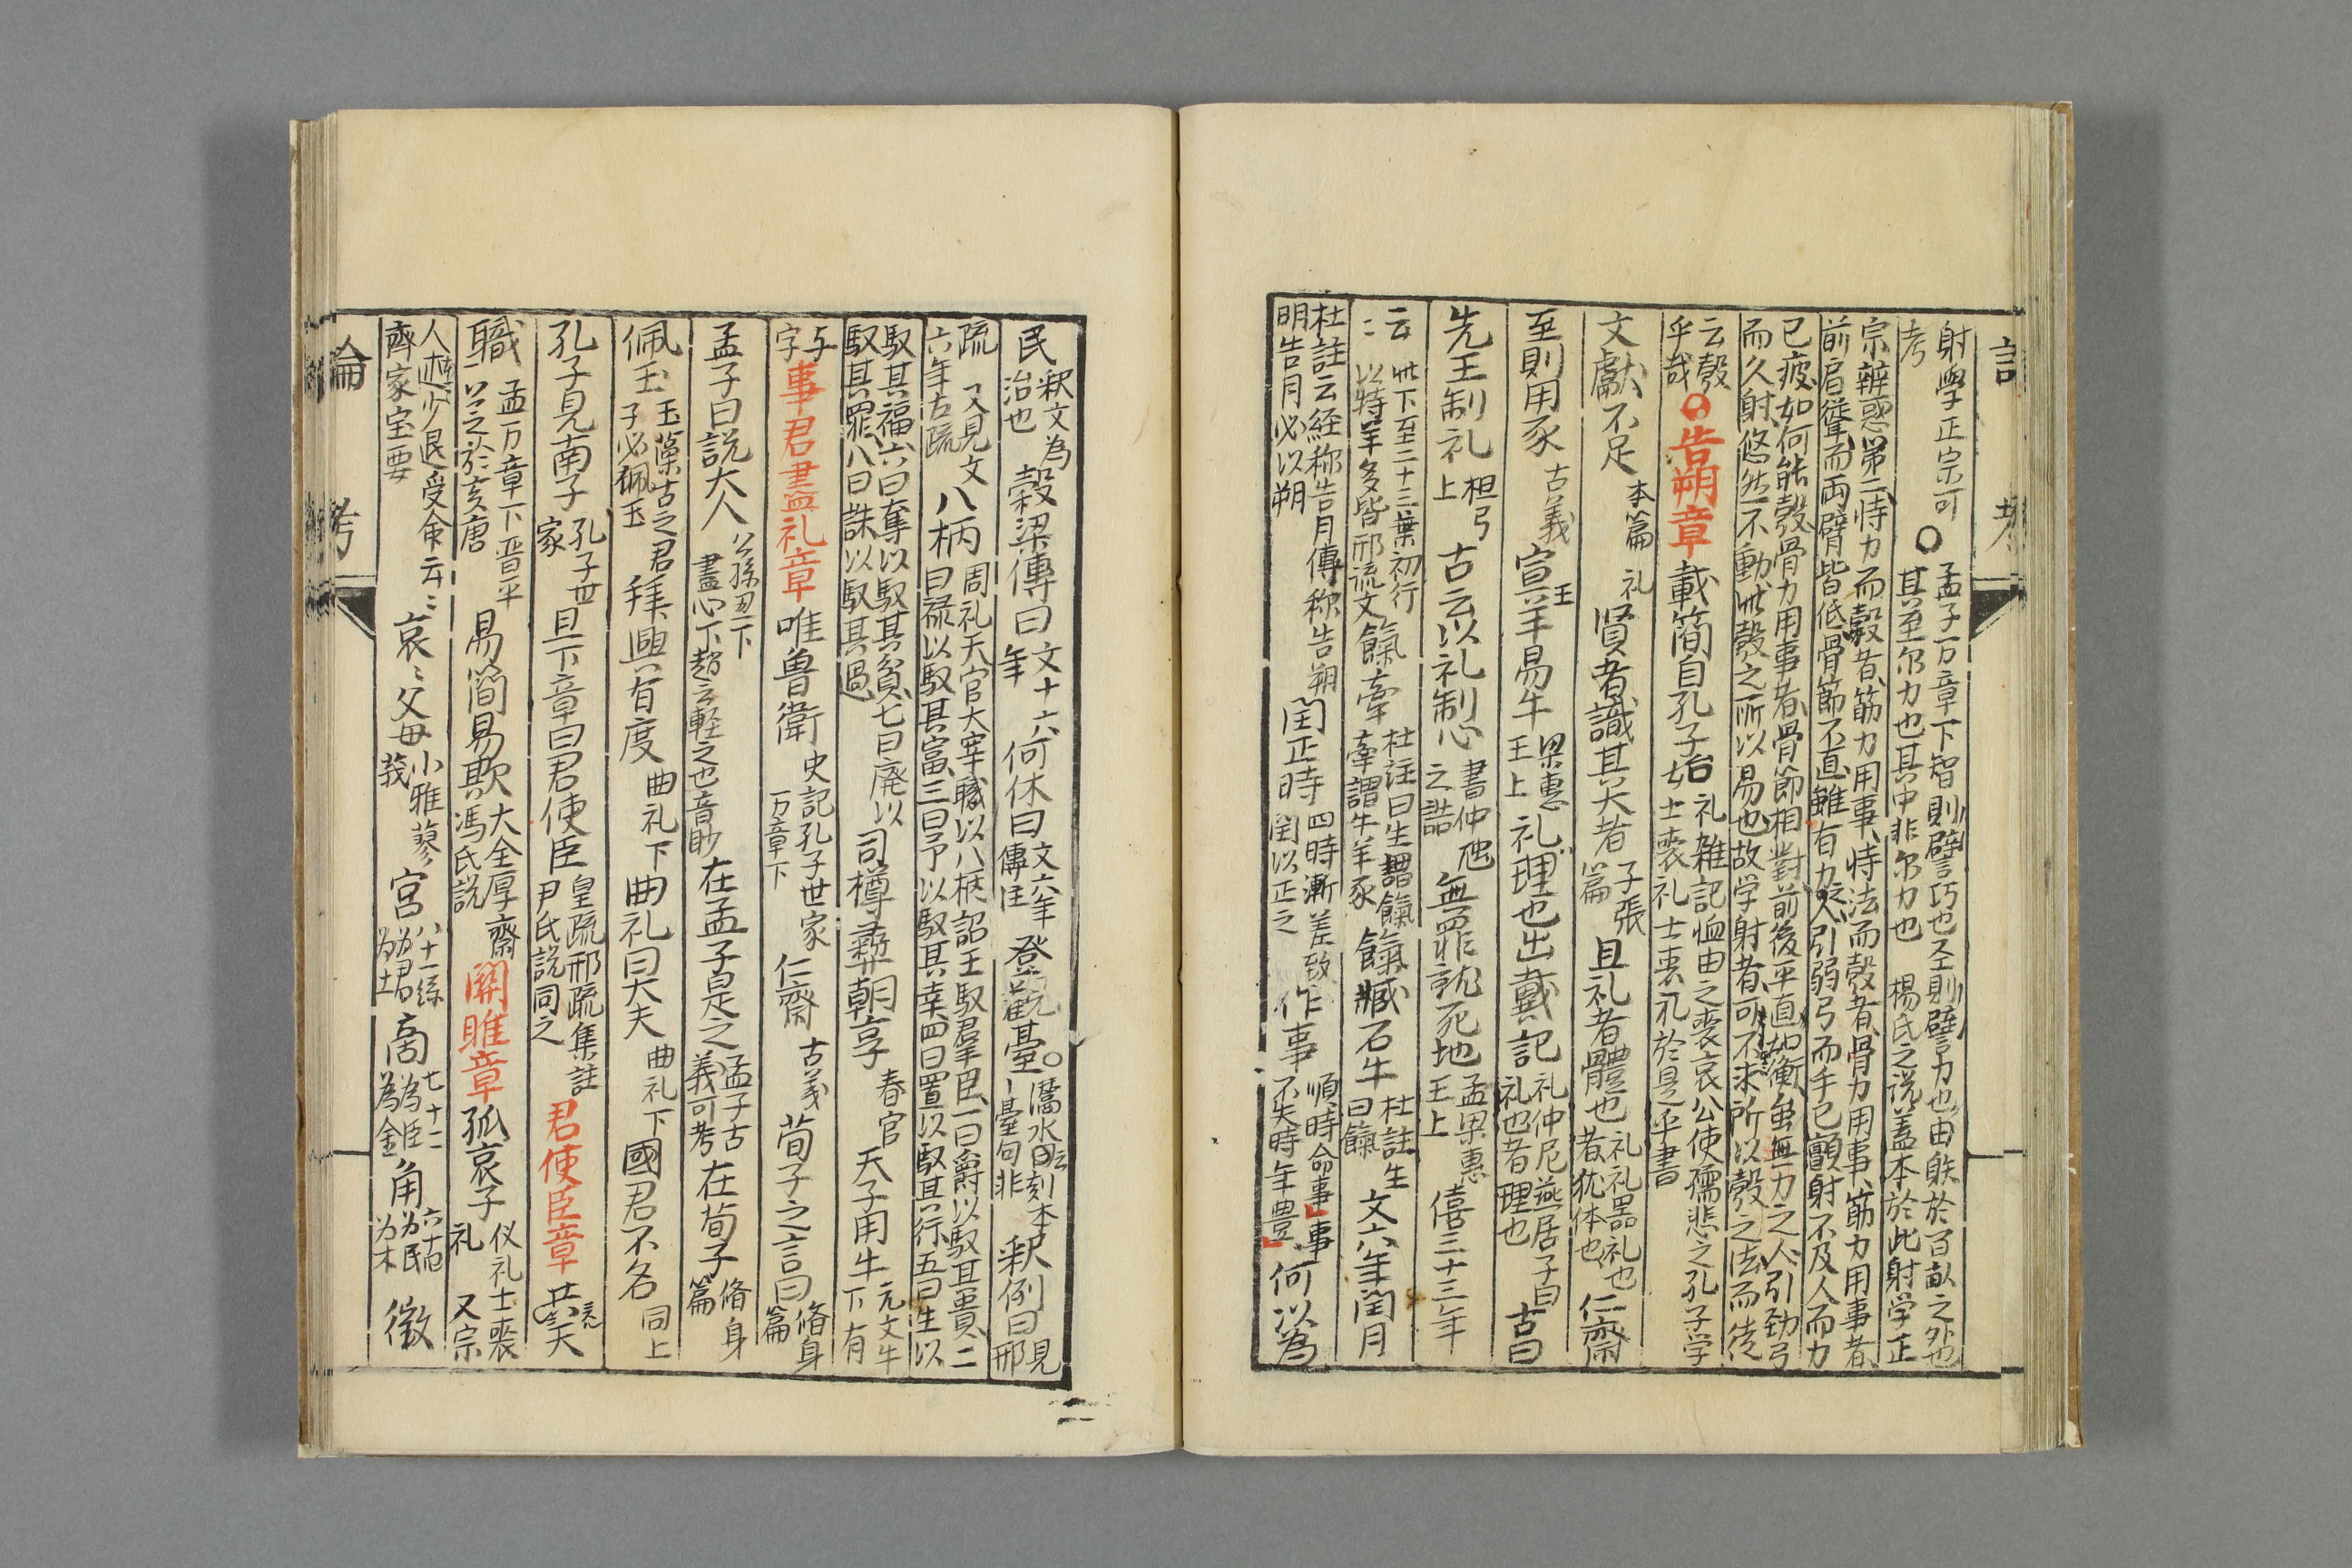 射學正宗可
考
○
孟子万章下智則譬巧也圣則譬力也由躲於百畝之外也
其至尔力也其中非尔力也 楊氏之説蓋本於此射学正
宗辨惑第二恃力而彀者筋力用事恃法而彀者骨力用事筋力用事者
前肩聳而両臂皆低骨節不直雖有力之人引弱弓而手已顫射不及人而力
已疲如何能彀骨力用事者骨節相對前後平直如衡虽無力之人引勁弓
而久射悠然不動此彀之所以易也故学射者可不求所以彀之法而徒
云彀
乎哉
○告朔章
載簡自孔子始
礼雜記恤由之喪哀公使孺悲之孔子学
士喪礼士喪礼於是乎書
文獻不足
本篇
礼
賢者識其大者
子張
篇
且礼者體也
礼礼器礼也
者犹体也
仁齋
至則用豕
古義
宣王羊易牛
梁惠
王上
礼理也出戴記
礼仲尼燕居子曰
礼也者理也
古曰
先王制礼
檀弓
上
古云以礼制心
書仲虺
之誥
無罪就死地
孟梁惠
王上
僖三十三年
云
〻
此下至二十三葉初行
以特羊多皆邢疏文
餼牽
杜註曰生謂餼
牽謂牛羊豕
餼臧石牛
杜註生
曰餼
文六年閏月
杜註云経称告月傳称告朔
明告月必以朔
閏正時
四時漸差致
閏以正之
作事
順時命事」事
不失時年豊」
何以為
民
釈文為
治也
穀梁傳曰
文十六
年
何休曰
文六年
傳注
登觀臺
○
釈例曰
見
邢
疏
六年左疏
又見文
八柄
周礼天官大宰職以八柄詔王馭群臣一曰爵以馭其貴二
曰禄以馭其富三曰予以馭其幸四曰置以馭其行五曰生以
馭其福六曰奪以馭其貧七曰廃以
馭其罪八曰誅以馭其過
司樽彝朝享
春官
天子用牛
元文牛
下有
与
字
事君盡礼章
唯魯衛
史記孔子世家
万章下
仁齋
古義
荀子之言曰
脩身
篇
孟子曰説大人
盡心下趙云軽之也音眇
在孟子是之
孟子古
義可考
在荀子
脩身
篇
佩玉
玉藻古之君
子必佩玉
拜興有度
曲礼下
曲礼曰大夫
曲礼下
國君不名
同上
孔子見南子
孔子世
家
且下章曰君使臣
皇疏邢疏集註
尹氏説同之
君使臣章
職
孟万章下晋平
公之於亥唐
易簡易欺
大全厚齋
馮氏説
關雎章
孤哀子
仪礼士喪
礼
又宗
齊家宝要
哀〻父母
小雅蓼
莪
宮
八十一絲
為君
為土
商
七十二
為臣
為金
角
六十四
為民
為木
徵
論
考